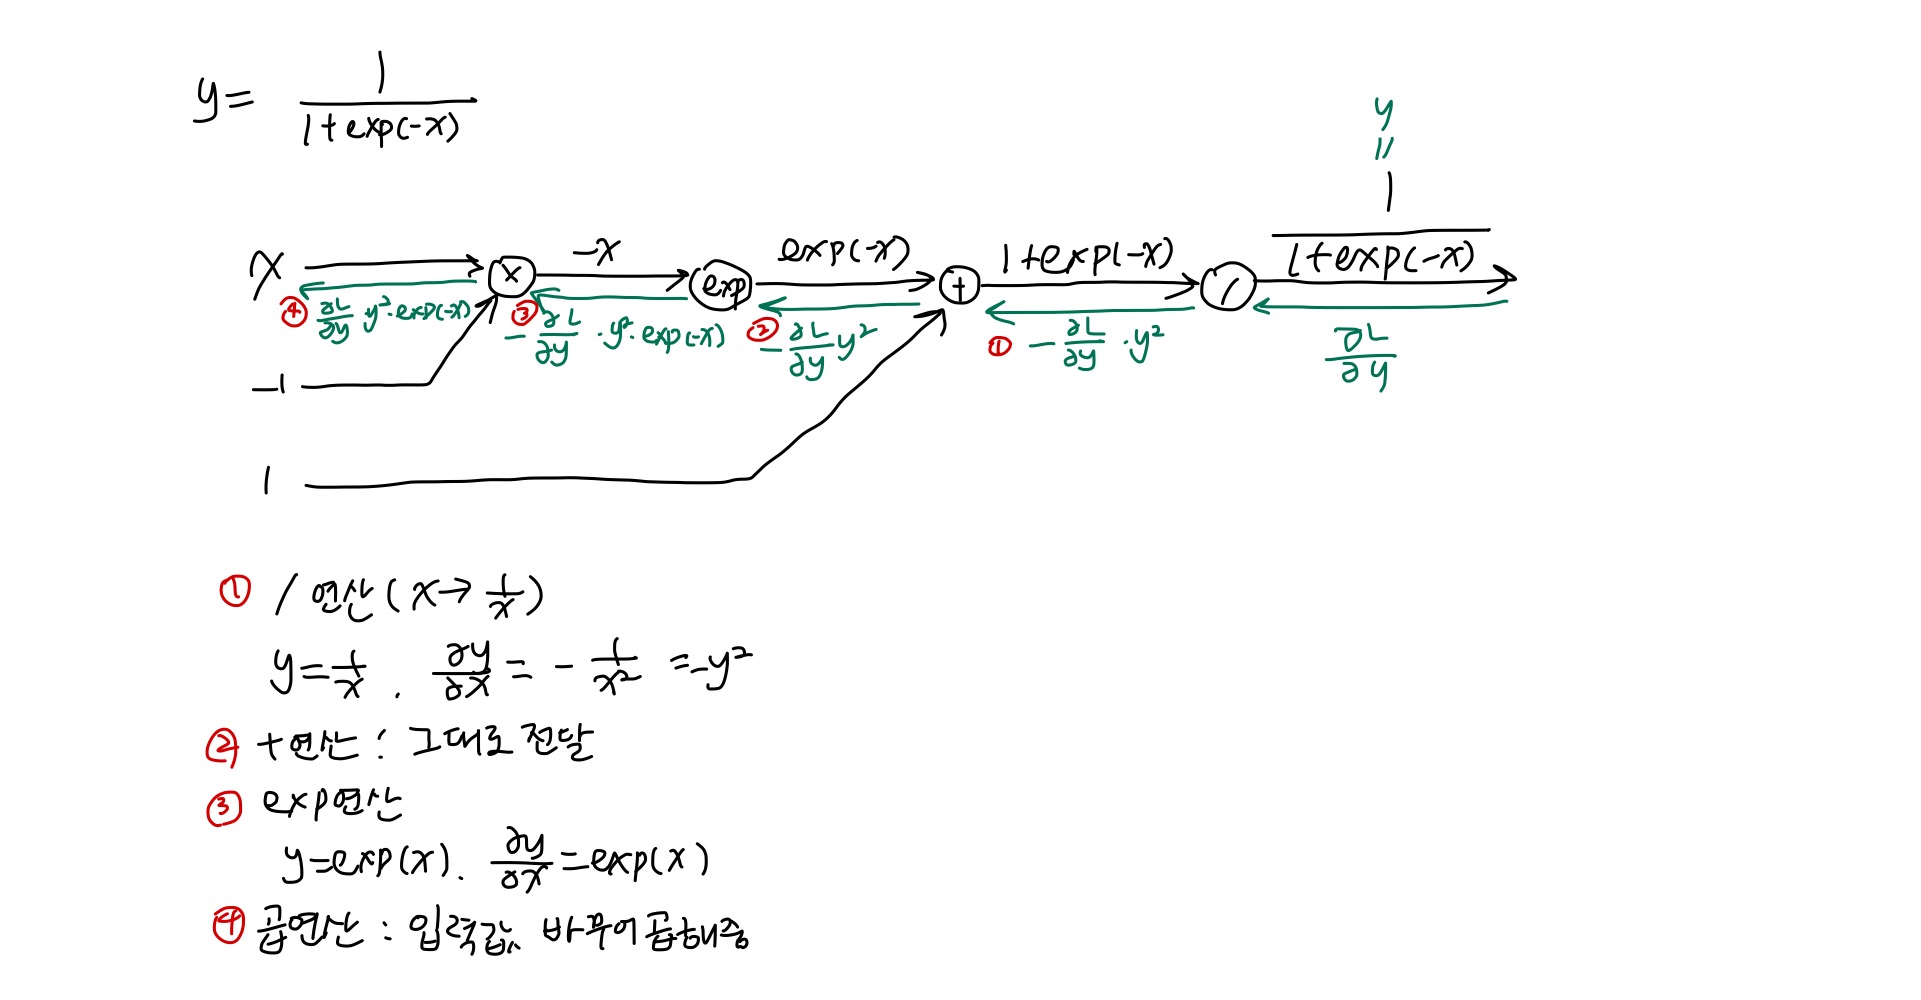 y= 1
1+exp(-x)
y
=
1
1+exp(-x)
x × -x exp exp(-x) + 1+exp(-x) /
④ ∂L/∂y y²·exp(-x) ③ -∂L/∂y ·y²·exp(-x) ② -∂L/∂y y² ① -∂L/∂y ·y² ∂L/∂y
-1
1
① / 연산 (x→1/x)
y=1/x . ∂y/∂x = -1/x² =-y²
② +연산 : 그대로 전달
③ exp연산
y=exp(x). ∂y/∂x=exp(x)
④ 곱연산 : 입력값 바꾸어 곱해줌